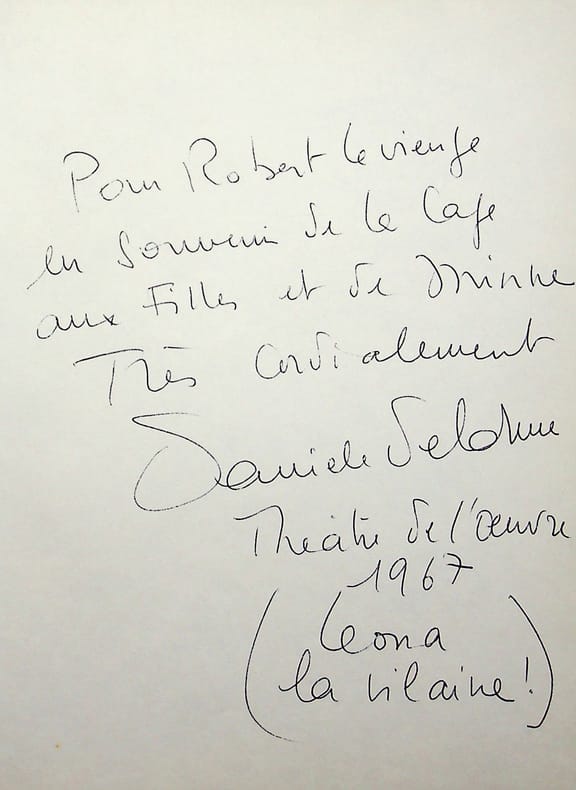 Pour Robert Levienge
en souvenir de la Cage
aux Filles et de Minne
Très Cordialement
Daniele Delorme
Théâtre de l'Œuvre
1967
(Leona
la vilaine!)